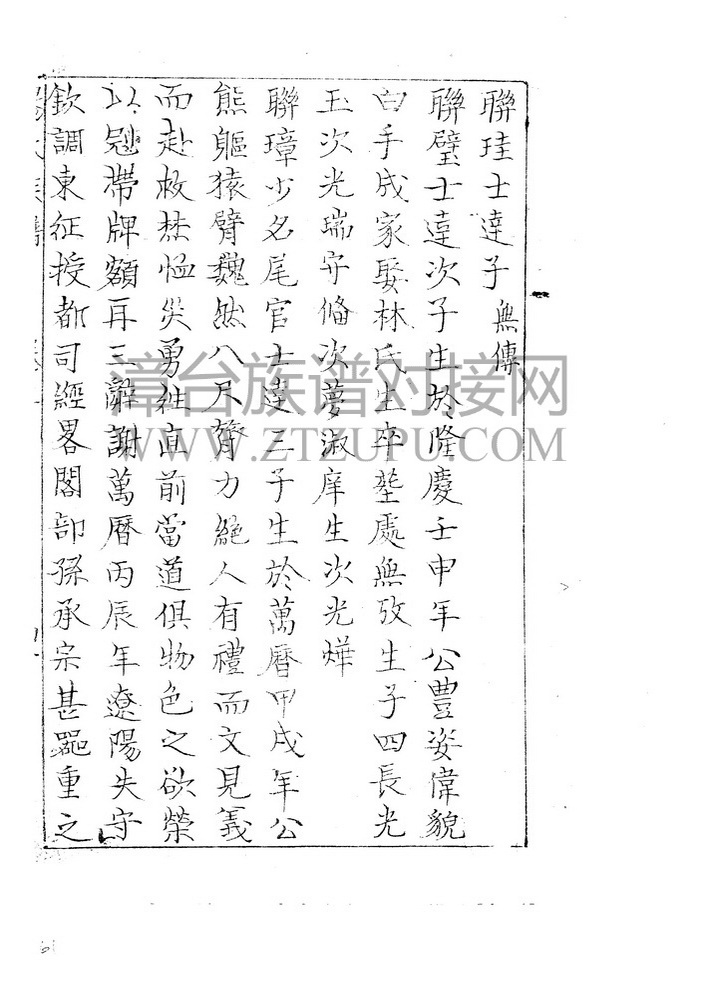 聯珪士達子無傳
聯璧士達次子生於隆慶壬申年公豊姿偉貌
白手成家娶林氏生卒塟處無攷生子四長光
玉次光瑞守備次夢淑庠生次光燁
聯璋少名尾官士達三子生於萬曆甲戌年公
熊軀猿臂魏然八尺膂力絕人有禮而文見義
而赴救焚恤災勇往直前當道俱物色之欲榮
以冠帶牌額再三辭謝萬曆丙辰年遼陽失守
欽調東征授都司經畧閣部孫承宗甚器重之
漳台族谱对接网
WWW.ZTZUPU.COM